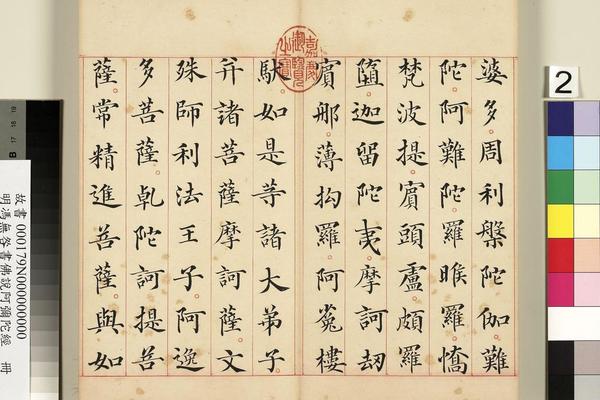 婆多。周利槃陀伽。難
陀。阿難陀。羅睺羅。憍
梵波提。賓頭盧。頗羅
墮。迦留陀夷。摩訶劫
賓那。薄拘羅。阿㝹樓
馱。如是等諸大弟子。
并諸菩薩摩訶薩。文
殊師利法王子。阿逸
多菩薩。乾陀訶提菩
薩。常精進菩薩。與如
嘉慶御覽之寶
2
故書 000179N000000000
書佛說阿彌陀經 冊